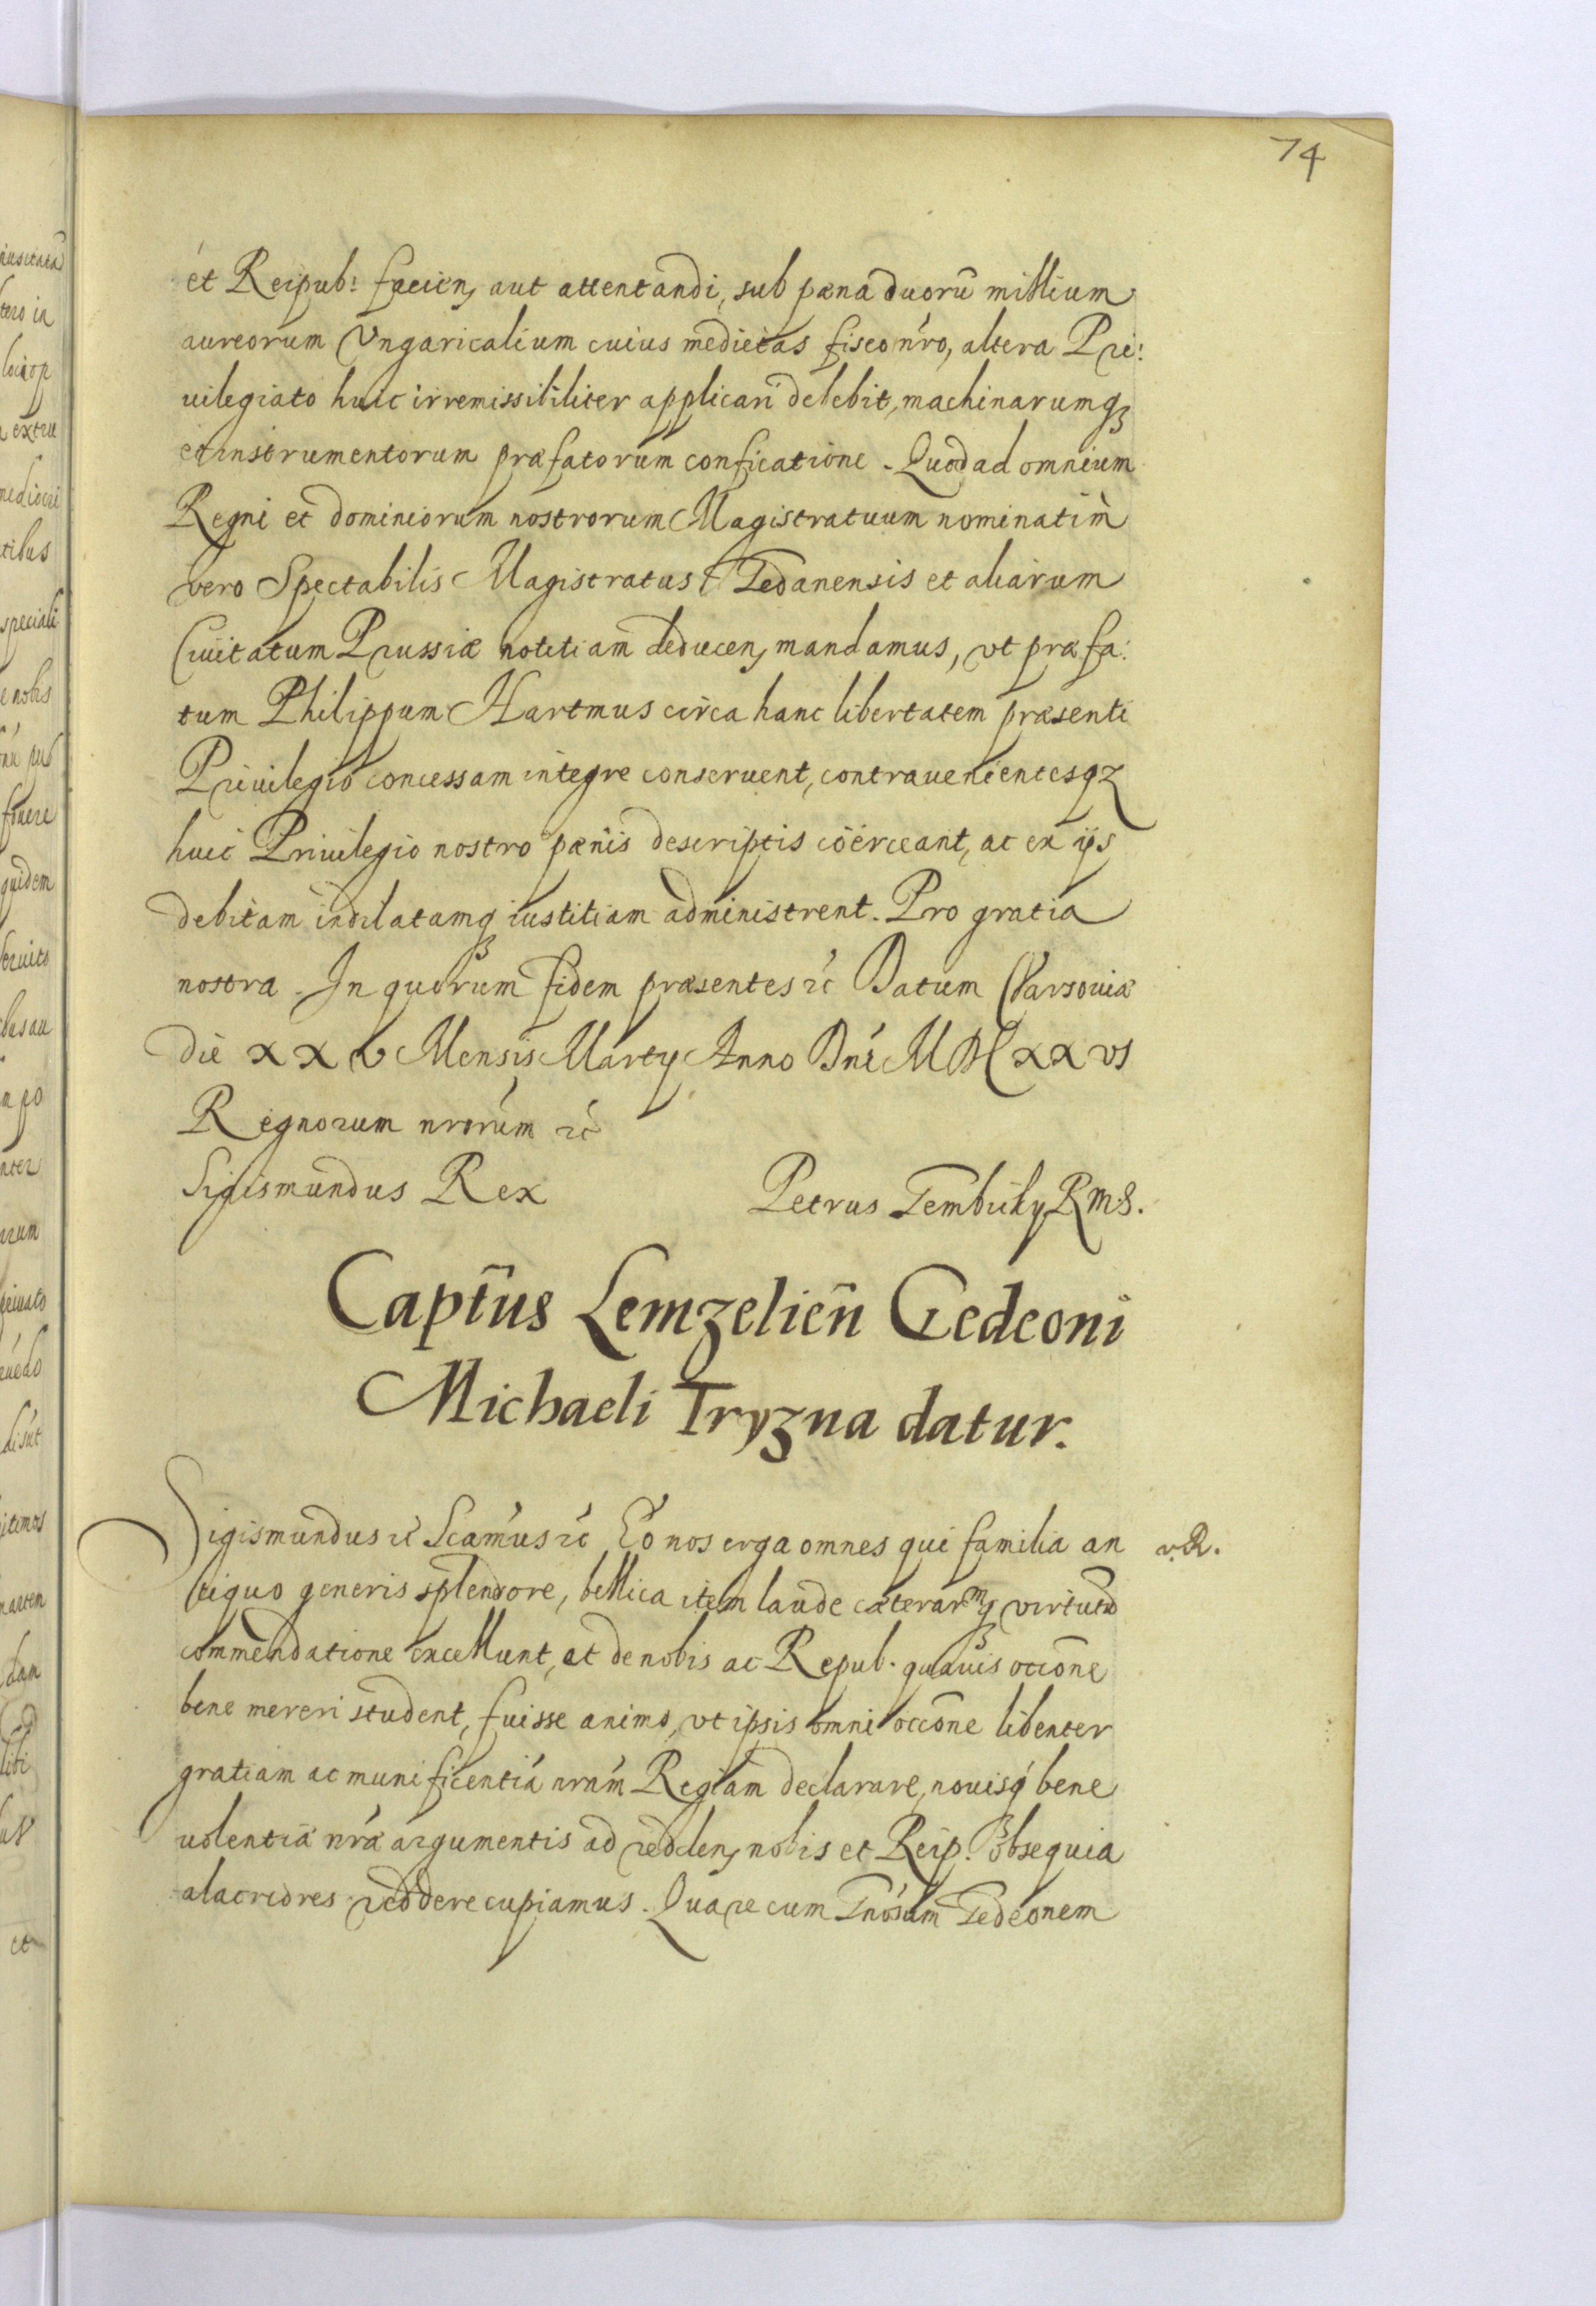 74
et Reipub: facien, aut attentandi, sub pœna duorũ millium
aureorum Vngaricalium cuius medietas fisco nr̃o, altera Pri:
uilegiato huic irremissibiliter applicari debebit, machinarumq3
et instrumentorum præfatorum conficatione. Quod ad omnium
Regni et dominiorum nostrorum Magistratuum nominatim
vero Spectabilis Magistratus Gedanensis et aliarum
Ciuitatum Prussiæ notitiam deducen, mandamus, vt præfa:
tum Philippum Hartmus circa hanc libertatem præsenti
Priuilegio concessam integre conseruent, contrauenientesq3
huic Priuilegio nostro pœnis descriptis coërceant, ac ex ijs
debitam indilatamq3 iustitiam administrent. Pro gratia
nostra. In quorum fidem præsentes ꝛc̃ Datum Varsouiæ
die XXV Mensis Martij Anno Dnĩ MDCXXVI
Regnorum nrorum ꝛc̃
Sigismundus Rex Petrus Gembicky RMS.
Capt̃us Lemzelien̄ Gedeoni
Michaeli Tryzna datur.
Sigismundus ꝛc̃ Scamus ꝛc̃ Eo nos erga omnes qui familia an
tiquo generis splendore, bellica item laude cæterarmq3 virtutũ
commendatione excellunt, et de nobis ac Repub. quauis occõne
bene mereri student, fuisse animo, vt ipsis omni occõne libenter
gratiam ac munificentiã nrãm Regiam declarare, nouisq3 bene
uolentiæ nrã argumentis ad redden, nobis et Reip. obsequia
alacriores reddere cupiamus. Quare cum Gnõsum Gedeonem